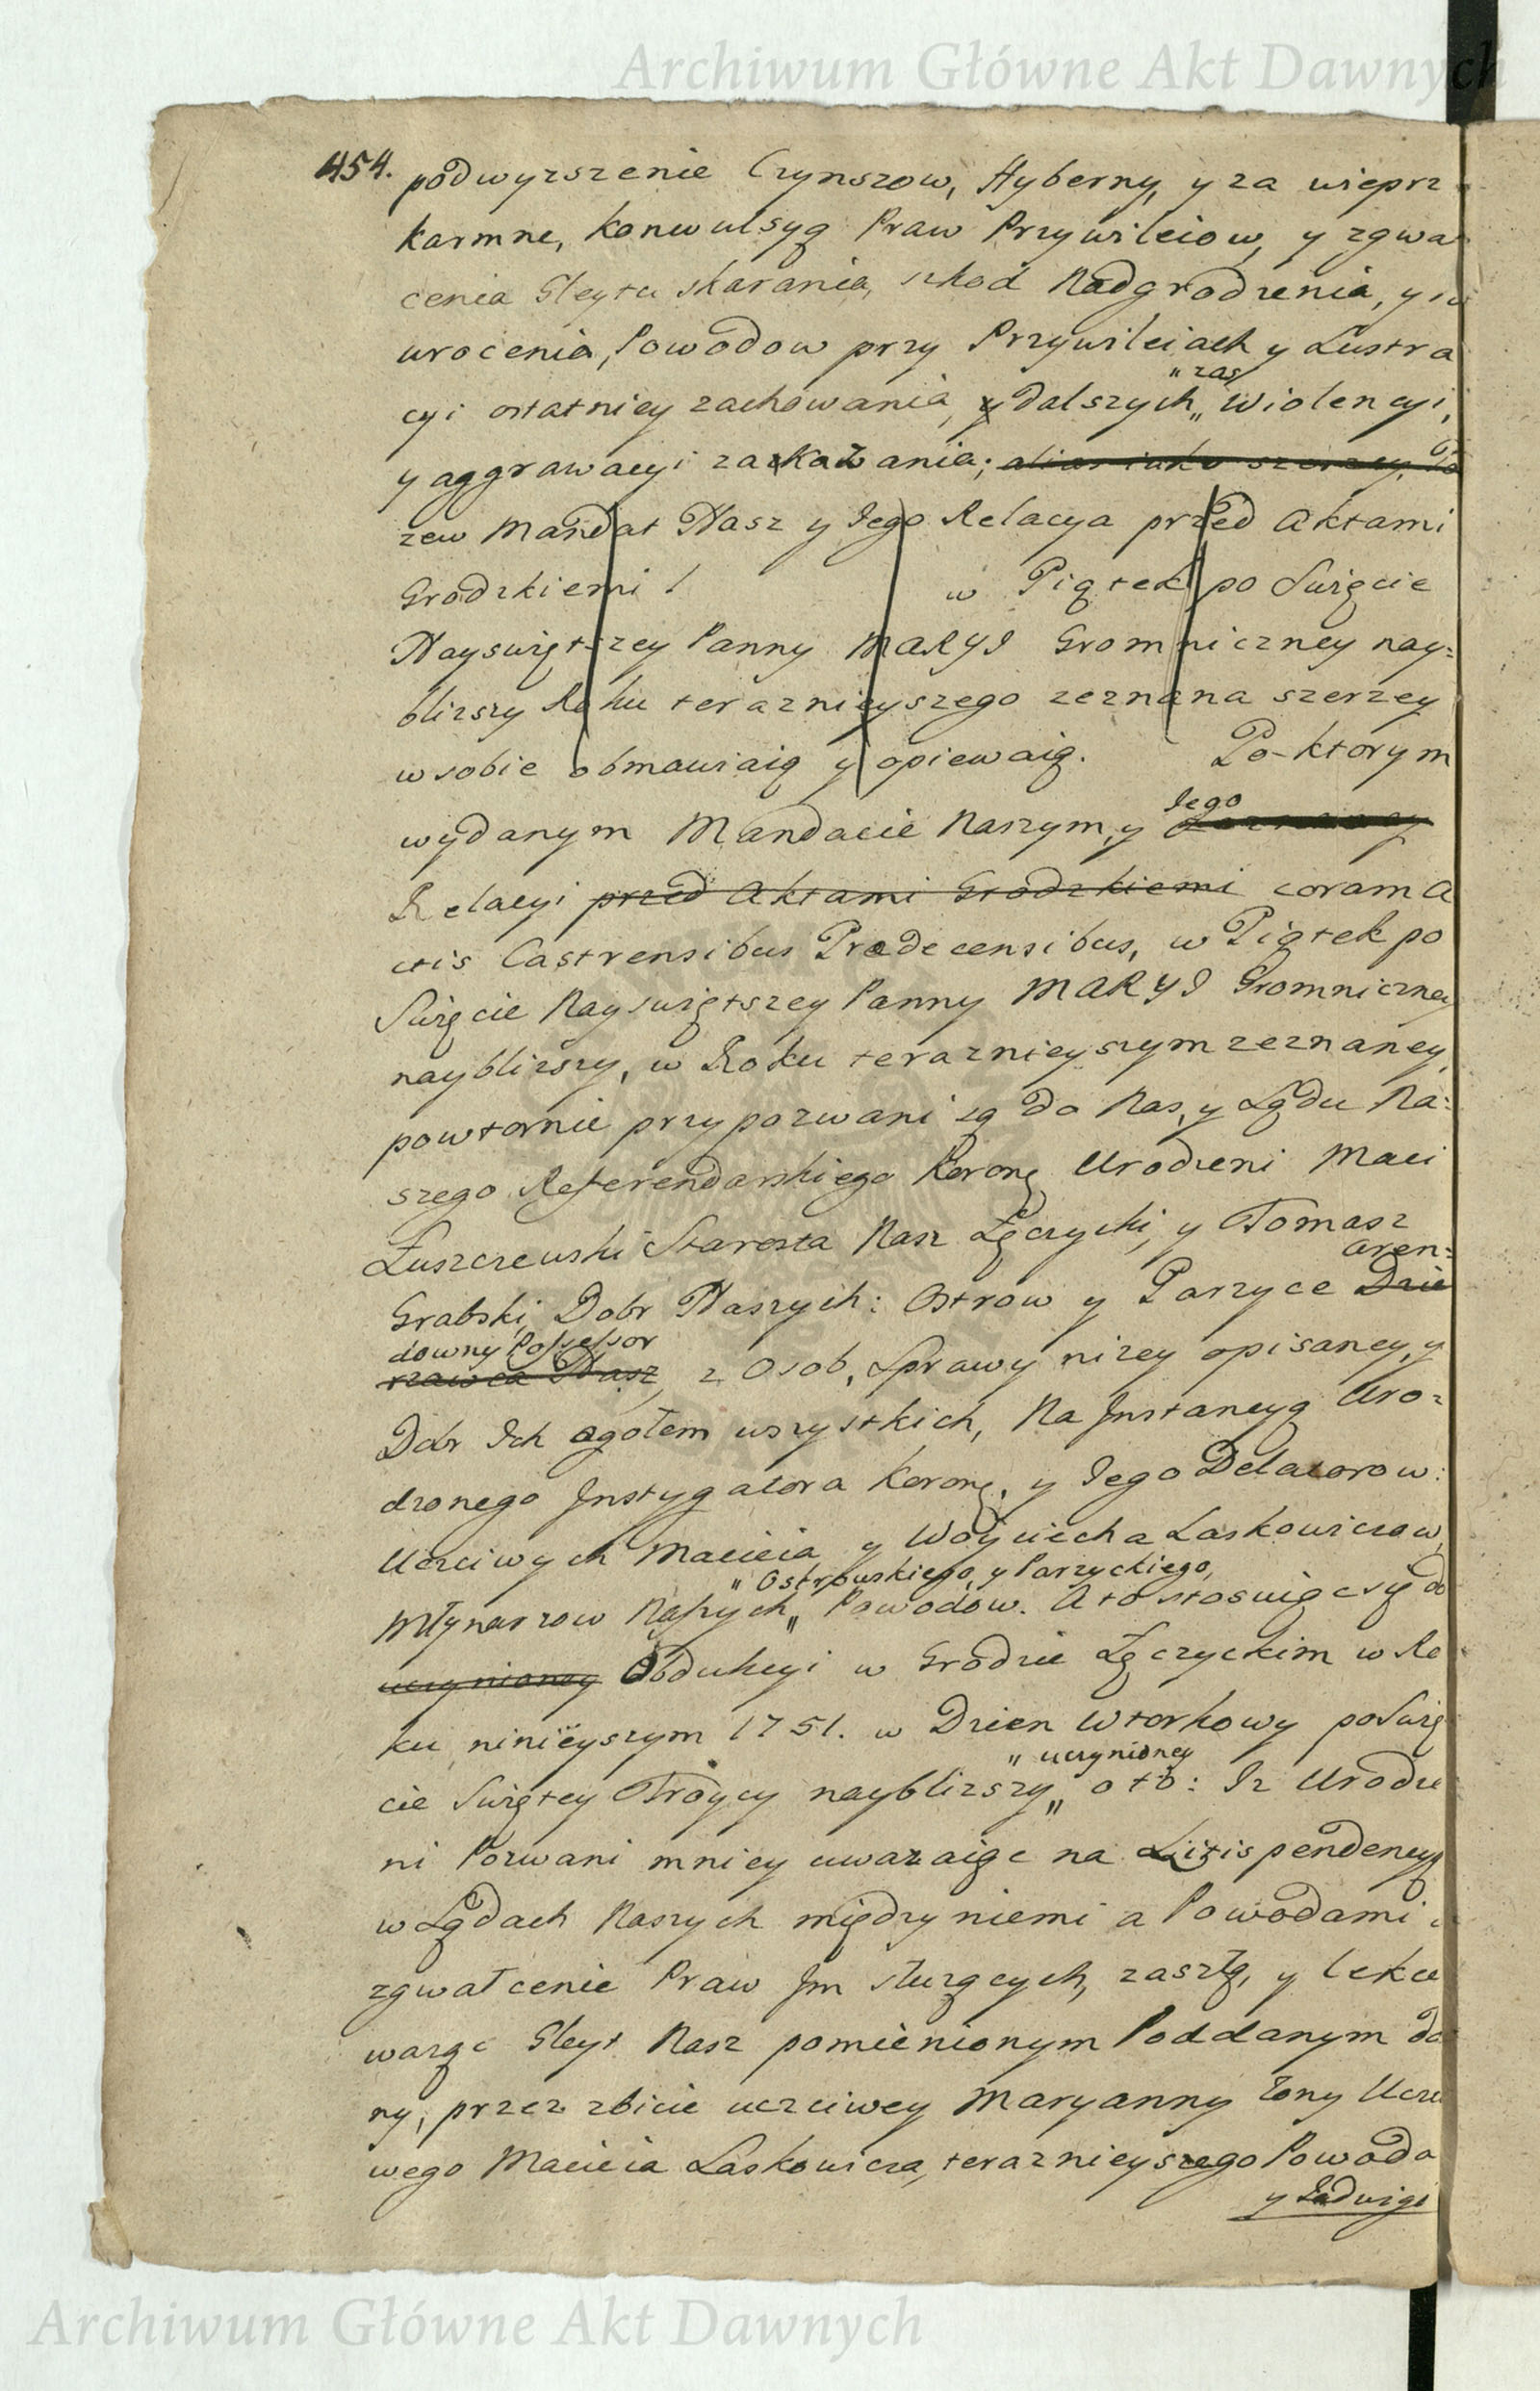 Archiwum Główne Akt Dawnych
454. podwyzszenie Czynszow, Hyberny, y za wieprz
karmne, konwulsyą Praw Przywileiow, y zgwał
cenia Gleytu skarania, szkod Nadgrodzenia, y
wrocenia, Powodow przy Przywileiach y Lustra
cyi ostatniey zachowania, y dalszych „zas„ Wiolencyi,
y aggrawacyi zakazania; alias iako szerzey, Po
zew Mandat Nasz y Jego Relacya przed Aktami
Grodzkiemi / w Piątek po Swięcie
Nayswiętszey Panny MARYI Gromniczney nay=
blizszy Roku teraznieyszego zeznana szerzey
w sobie obmawiaią y opiewaią. Po-ktorym
wydanym Mandacie Naszym, y Jego
Relacyi przed Aktami Grodzkiemi coram A
ctis Castrensibus Predecensibus, w Piątek po
Swięcie Nayswiętszey Panny MARYI Gromniczney
nayblizszy, w Roku teraznieyszym zeznaney,
powtornie przypozwani są do Nas, y Sądu Na=
szego Referendarskiego Koronę Urodzeni Maci
Łuszczewski Starosta Nasz Łęczycki, y Tomasz
Grabski, Dobr Naszych: Ostrow y Parzyce Dzie aren=
rzawca Nasz downy Possessor, z Osob, Sprawy nizey opisaney, y
Dobr Ich ogołem wszystkich, Na Instancyą Uro=
dzonego Instygatora Koronę, y Jego Delatorow:
Uczciwych Macieia, y Woyciecha Laskowiczow,
Młynarzow Naszych „Ostrowskiego, y Parzyckiego,„ Powodow. A to stosuiąc się do
uczynioney Obdukcyi w Grodzie Łęczyckim w Ro
ku ninieyszym 1751. w Dzien Wtorkowy po Swię
cie Swiętey Troycy nayblizszy „uczynioney„ o to: Iz Urodze
ni Pozwani mniey uwazaiąc na Litispendencyą
w Sądach Naszych między niemi a Powodami
zgwałcenie Praw Im słuzących, zaszłą, y lekce
waząc Gleyt Nasz pomienionym Poddanym da
ny, przez zbicie uczciwey Maryanny Zony Uczci
wego Macieia Laskowicza, teraznieyszego Powoda
y Jadwigi
Archiwum Główne Akt Dawnych